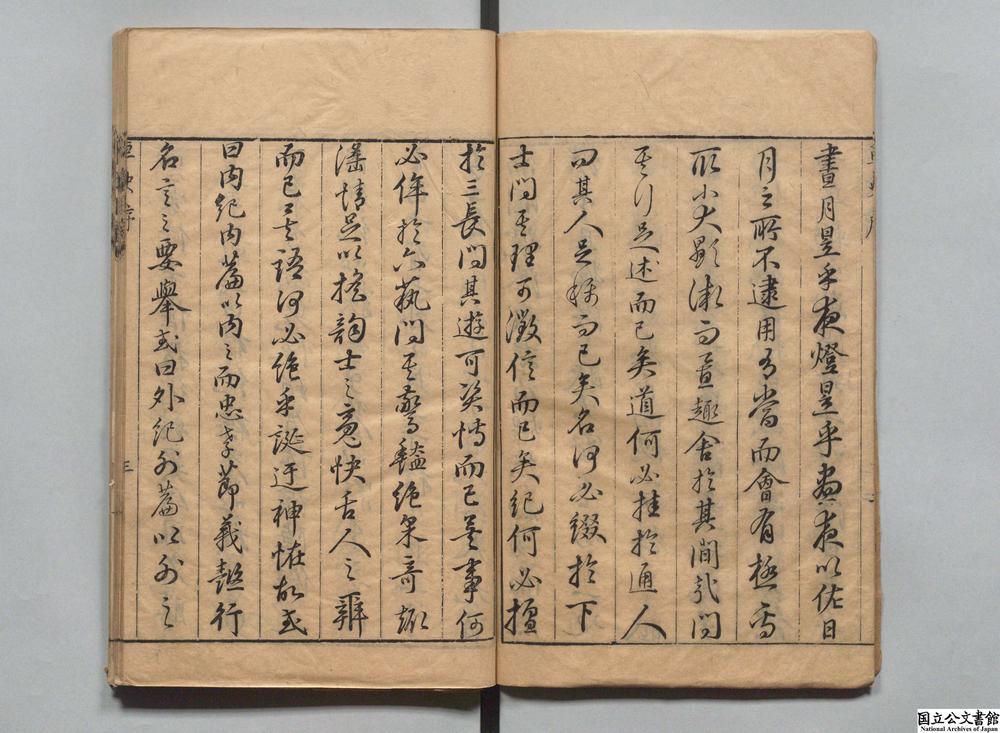 晝月昱乎夜燈昱乎晝夜以佐日
月之所不逮用各當而會有極焉
取小大顯微而置趣舍於其間哉問
其行足述而已矣道何必挂於通人
問其人足稱而已矣名何必綴於下
士問其理可徵信而已矣紀何必擅
於三長問其遊可資博而已矣事何
必侔於六藝問其驚豔絕眾奇
瑤情足以搖韵士之魂快舌人之辯
而已矣語何必絕乎誕迂神怪故或
曰內紀內篇以內之而忠孝節義懿行
名言之要舉或曰外紀外篇以外之
序
三
国立公文書館
National Archives of Japan